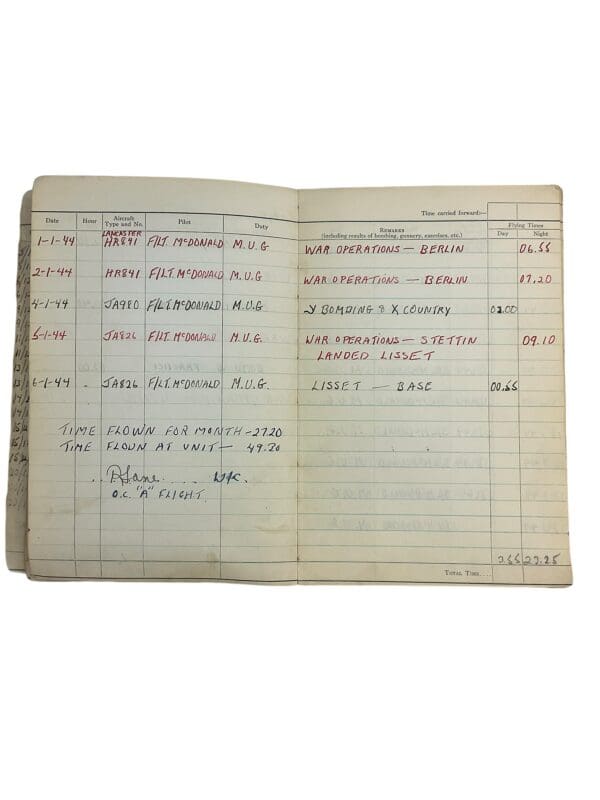 Time carried forward:—
Date Hour Aircraft Type and No. Pilot Duty REMARKS (including results of bombing, gunnery, exercises, etc.) Flying Times Day Night
LANCASTER
1-1-44 HR841 F/LT. McDONALD M.U.G WAR OPERATIONS — BERLIN 06.55
2-1-44 HR841 F/LT. McDONALD M.U.G WAR OPERATIONS — BERLIN 07.20
4-1-44 JA980 F/LT. McDONALD M.U.G BOMBING & X COUNTRY 02.00
5-1-44 JA826 F/LT. McDONALD M.U.G. WAR OPERATIONS — STETTIN 09.10
LANDED LISSET
6-1-44 JA826 F/LT. McDONALD M.U.G. LISSET — BASE 00.55
TIME FLOWN FOR MONTH — 27.20
TIME FLOWN AT UNIT — 49.20
O.C. "A" FLIGHT.
TOTAL TIME....